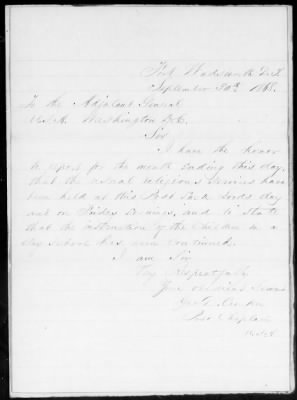 Fort Wadsworth D.T.
September 30th 1868.
To the Adjutant General
U.S.A. Washington D.C.
Sir
I have the honor
to report for the month ending this day,
that the usual religious services have
been held at this Post each Lord's day
and on Friday evenings, and to state
that the instruction of the children in a
day school has been continued.
I am Sir
Very Respectfully
Your obedient Servant
Post Chaplain
U.S.A.